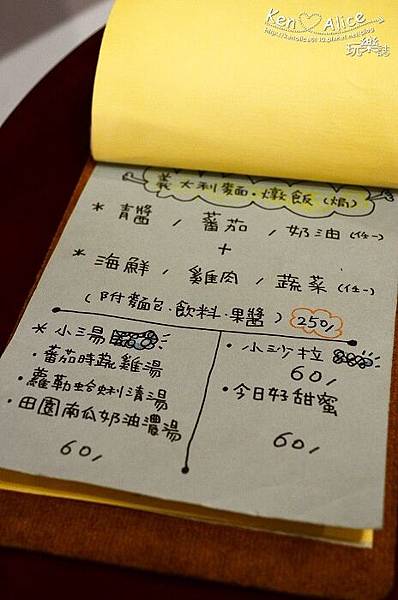 Ken♡Alice
玩樂誌
義大利麵·燉飯(焗)
* 青醬 / 蕃茄 / 奶油(任一)
+
* 海鮮 / 雞肉 / 蔬菜(任一)
(附麵包·飲料·果醬) 250/
* 小湯
·蕃茄時蔬雞湯
·蘿勒蛤蜊清湯
·田園南瓜奶油濃湯
60/
·小沙拉
60/
·今日好甜蜜
60/